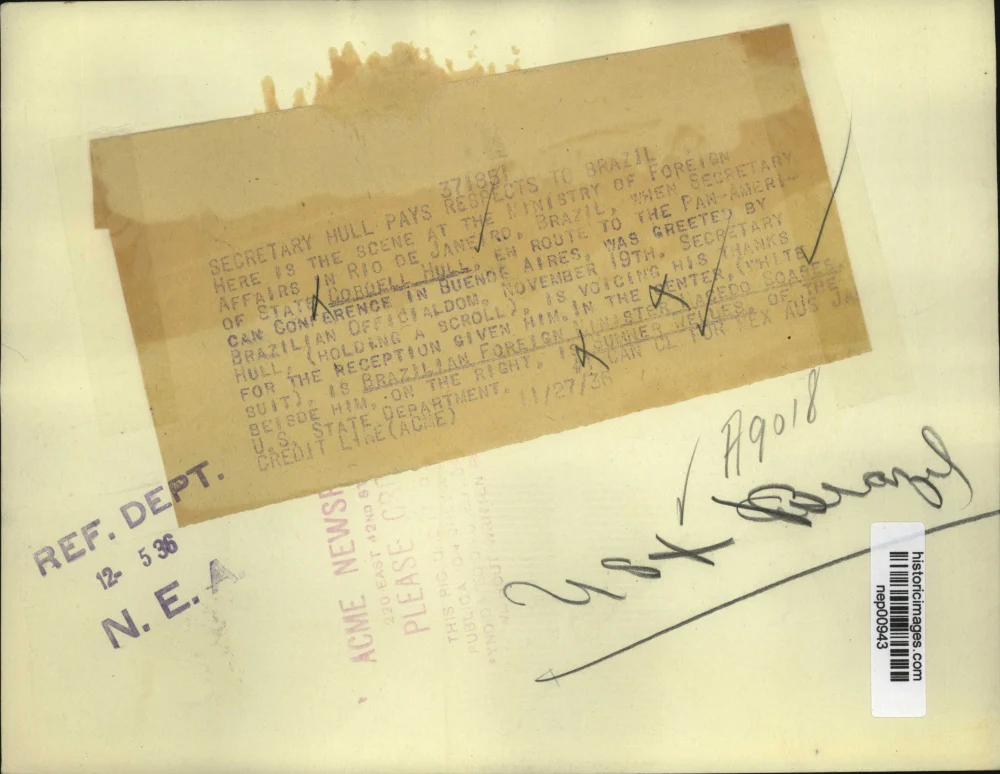 371851
SECRETARY HULL PAYS RESPECTS TO BRAZIL
HERE IS THE SCENE AT THE MINISTRY OF FOREIGN
AFFAIRS IN RIO DE JANEIRO, BRAZIL, WHEN SECRETARY
OF STATE CORDELL HULL, EN ROUTE TO THE PAN-AMERI-
CAN CONFERENCE IN BUENOS AIRES, WAS GREETED BY
BRAZILIAN OFFICIALDOM, NOVEMBER 19TH. SECRETARY
HULL, (HOLDING A SCROLL), IS VOICING HIS THANKS
FOR THE RECEPTION GIVEN HIM. IN THE CENTER, (WHITE
SUIT), IS BRAZILIAN FOREIGN MINISTER MACEDO SOARES.
BEISDE HIM, ON THE RIGHT, IS SUMNER WELLES, OF THE
U.S. STATE DEPARTMENT.
CREDIT LINE (ACME) 11/27/36 CAN CL FOR MEX AUS JA
REF. DEPT.
12- 5 36
N. E. A
ACME NEWSP
220 EAST 42ND ST
PLEASE CRE
THIS PIC
A9018
Brazil
historicimages.com
nep00943